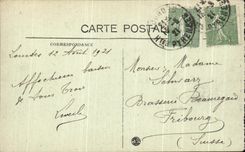 CARTE POSTALE
CORRESPONDANCE
Lourdes 12 Août 1921
Affectueux baisers
à tous trois
Monsieur, Madame
Schwarz
Brasserie Beauregard
Fribourg
(Suisse)